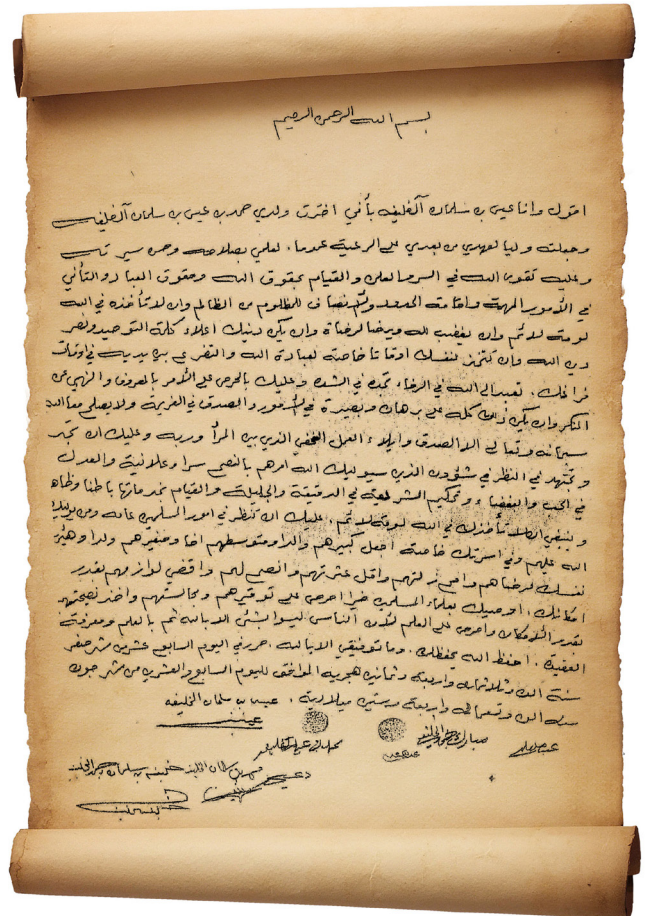 بسم الله الرحمن الرحيم
اقول وانا عيسى بن سلمان آل خليفه بأني اخترت ولدي حمد بن عيسى بن سلمان آل خليفه
وجعلته وليا لعهدي من بعدي على الرعية عموما، لعلمي بصلاحه وحسن سيرته
وعليه تقوى الله في السر والعلن والقيام بحقوق الله وحقوق العباد والتأني
في الأمور المهمة واقامة الحدود والإنصاف للمظلوم من الظالم وان لا تأخذه في الله
لومة لائم وان يغضب لله ويرضا لرضاه وان يكن دينك اعلاء كلمة التوحيد ونصر
دين الله وان تتحرز لنفسك اوقاتا خاصة لعبادة الله والتضرع بين يديه في اوقات
فراغك. تعبد الى الله في الرخاء تجده في الشده وعليك بالحرص على الأمر بالمعروف والنهي عن
المنكر وان يكن ذلك كله على برهان وبصيرة في الأمور والصدق في العزيمة ولا يصلح مع الله
سبحانه وتعالى الا الصدق وايلاء العمل الخفي الذي بين المرأ وربه وعليك ان تتحر
وتجتهد في النظر في شؤون الذين سيوليك الله امرهم بالنصح سرا وعلانية والعدل
في الحب والبغضاء وتحكيم الشرعية في الدقيقة والجليلة والقيام بخدماتها باطنا وظاهرا
وينبغي ان لا تأخذك في الله لومة لائم. عليك ان تنظر في امور المسلمين عامة ومن
الله عليهم وفي اسرتك خاصة اجعل كبيرهم والدا ومتوسطهم اخا وصغيرهم ولدا وهين
نفسك لرضاهم وامح زلتهم واقل عثرتهم وانصح لهم واقضي لوازمهم بقدر
امكانك، اوصيك بعلماء المسلمين خيرا احرص على توقيرهم ومجالستهم واخذ نصيحتهم
بقدر الأمكان واحرص على العلم لأن الناس ليسوا بشئ الا بالله ثم بالعلم ومعرفة
العقيدة. احفظ الله يحفظك. وما توفيقي الا بالله. حرر في اليوم السابع عشر من شهر صفر
سنة الف وثلاثمائة واربعة وثمانين هجرية الموافق لليوم السابع والعشرين من شهر جون
سنة الف وتسعمائة واربعة وستين ميلادية. عيسى بن سلمان الخليفه